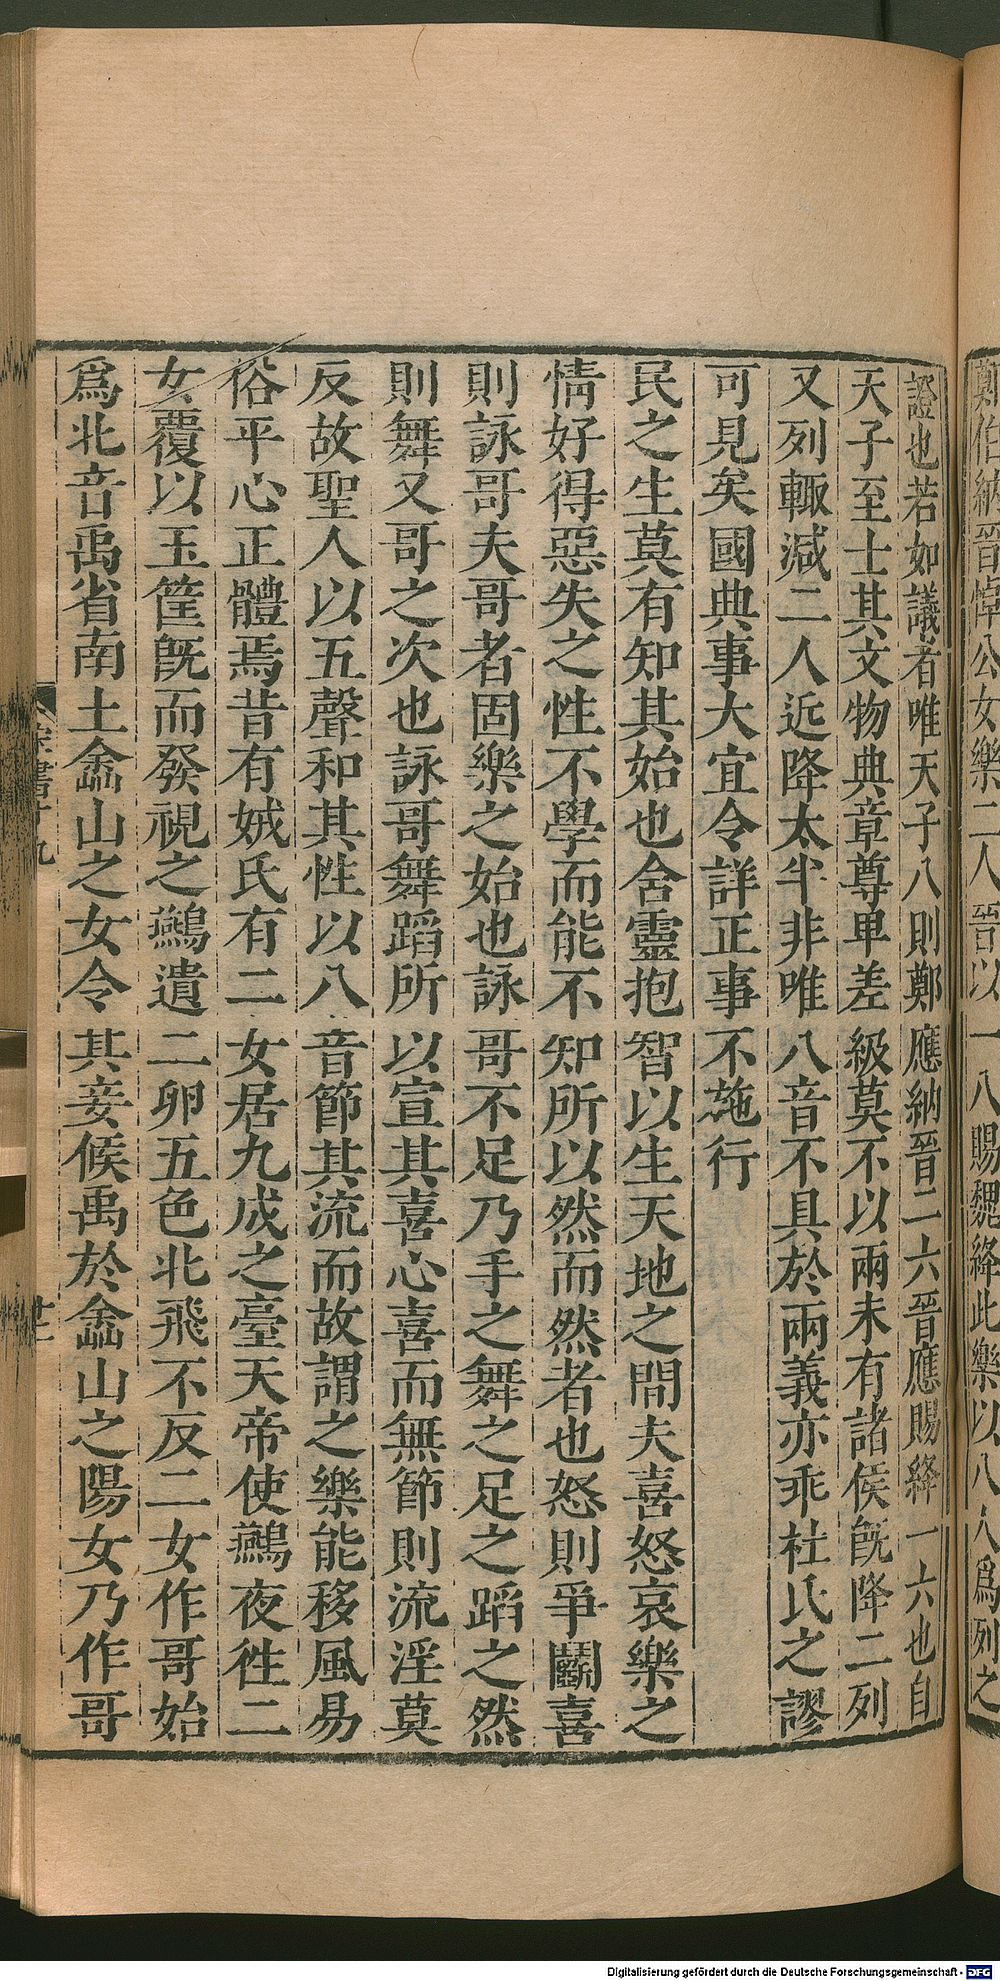 鄭伯納晉悼公女樂二八晉以一八賜魏絳此樂以八人爲列之
證也若如議者唯天子八則鄭應納晉二六晉應賜絳一六也自
天子至士其文物典章尊卑差級莫不以兩未有諸侯旣降二列
又列輙減二人近降太半非唯八音不具於兩義亦乖杜氏之謬
可見矣國典事大宜令詳正事不施行
民之生莫有知其始也含靈抱智以生天地之間夫喜怒哀樂之
情好得惡失之性不學而能不知所以然而然者也怒則爭鬭喜
則詠哥夫哥者固樂之始也詠哥不足乃手之舞之足之蹈之然
則舞又哥之次也詠哥舞蹈所以宣其喜心喜而無節則流淫莫
反故聖人以五聲和其性以八音節其流而故謂之樂能移風易
俗平心正體焉昔有娀氏有二女居九成之臺天帝使鷰夜徃二
女覆以玉筐旣而發視之鷰遺二卵五色北飛不反二女作哥始
爲北音禹省南土嵞山之女令其妾候禹於嵞山之陽女乃作哥
宋書十九
廿一
Digitalisierung gefördert durch die Deutsche Forschungsgemeinschaft - DFG